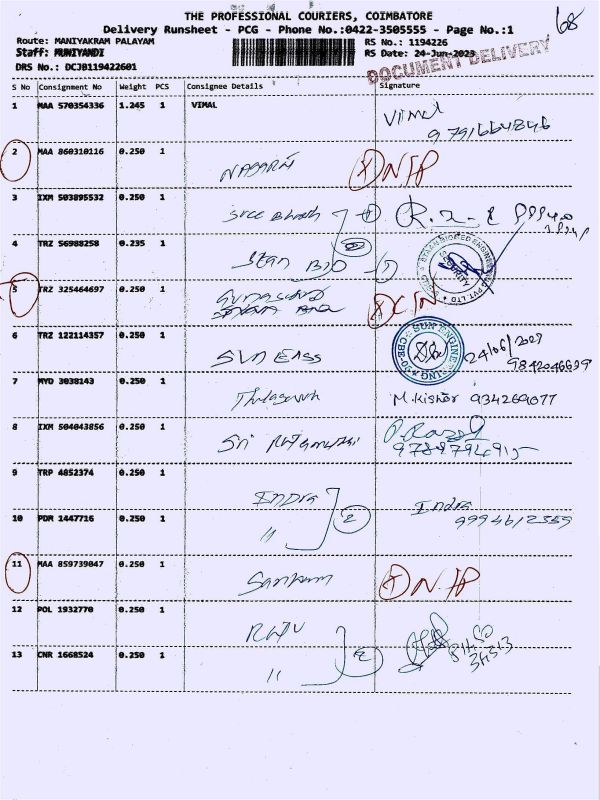 THE PROFESSIONAL COURIERS, COIMBATORE
68
Delivery Runsheet - PCG - Phone No.:0422-3505555 - Page No.:1
Route: MANIYAKRAM PALAYAM
RS No.: 1194226
Staff: MUNIYANDI
RS Date: 24-Jun-2023
DRS No.: DCJB119422601
DOCUMENT DELIVERY
S No Consignment No Weight PCS Consignee Details Signature
1 MAA 570354336 1.245 1 VIMAL Vimal
9791664846
2 MAA 860310116 0.250 1 NAGARAJ NIP
3 IXM 503895532 0.250 1 Sree
4 TRZ 56988258 0.235 1 Stan BIO
5 TRZ 325464697 0.250 1
6 TRZ 122114357 0.250 1 SUN Engg SUN ENGINEERING 24/06/2027
9842046699
7 MYD 3038143 0.250 1 M.Kishor 934269077
8 IXM 504043856 0.250 1 Sri
9 TRP 4852374 0.250 1 Indra Indra
9994612559
10 PDM 1447716 0.250 1 " 2
11 MAA 859739047 0.250 1 NIP
12 POL 1932770 0.250 1 RAJU
13 CNR 1668524 0.250 1 " 2